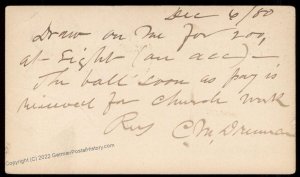 Dec 6/80
Draw on me for 200,
at sight (on acc) —
The ball soon as pay is
received for church work
Resy C. M. Drennan
Copyright (C) 2023 GermanPostalHistory.com